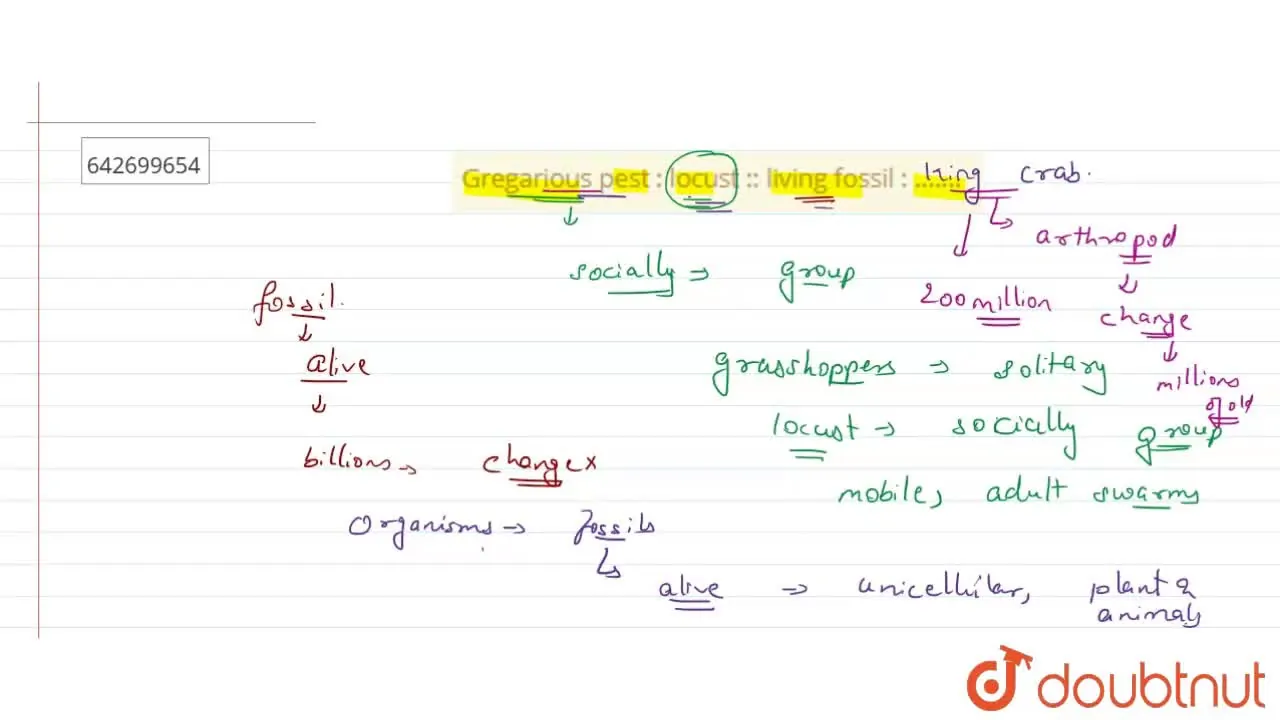 642699654
Gregarious pest : locust :: living fossil : ....... king crab.
arthropod
socially → group
fossil.
200 million
change
alive
grasshoppers → solitary
millions
of old
locust → socially group
billions → change x
mobile, adult swarms
Organisms → fossils
alive → unicellular, plant &
animals
doubtnut